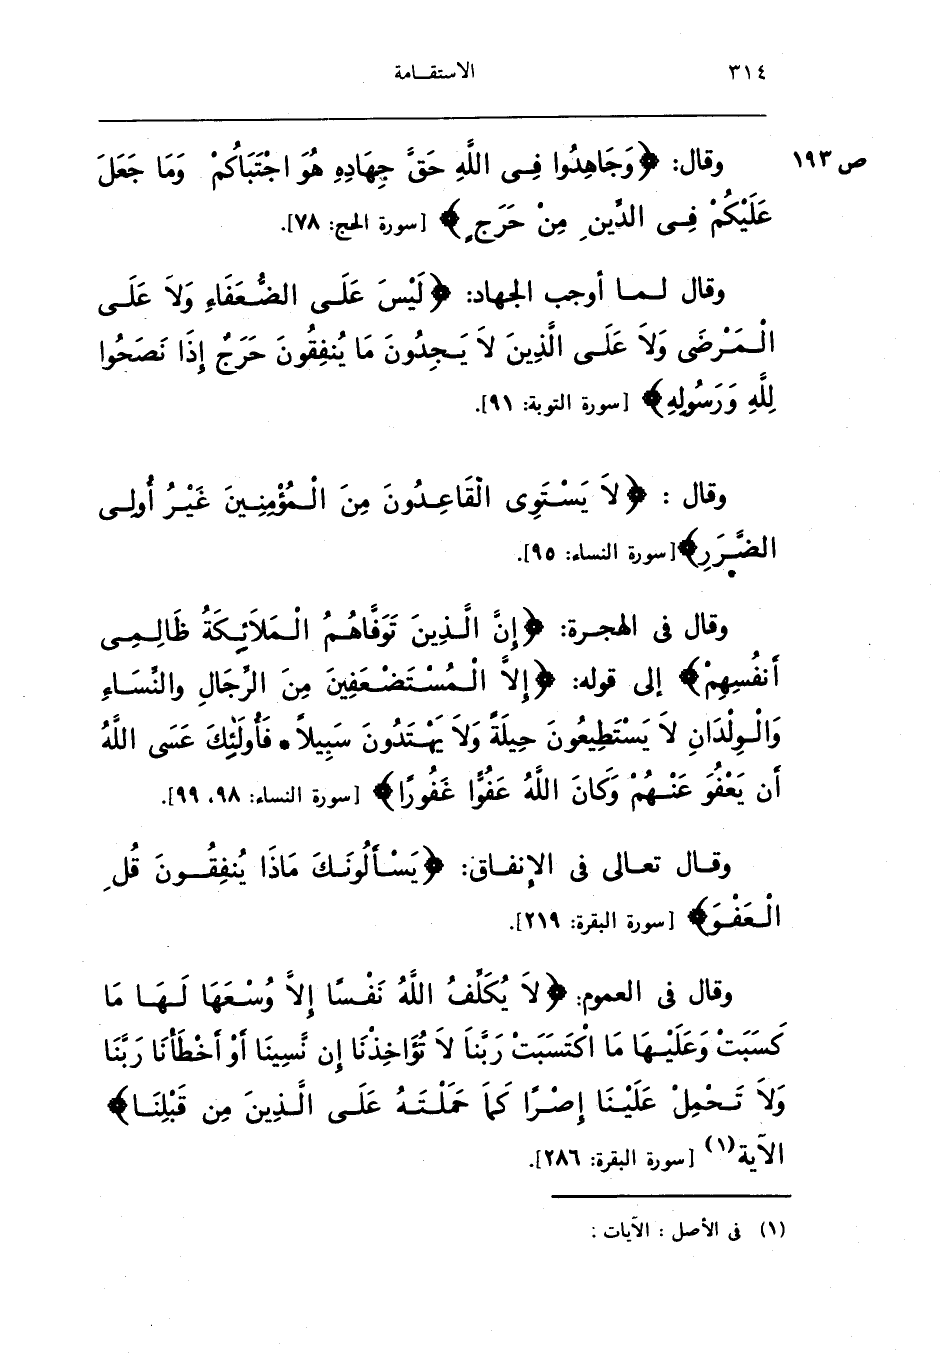 ٣١٤ الاستقامة
ص ١٩٣ وقال: ﴿وَجَاهِدُوا فِى اللَّهِ حَقَّ جِهَادِهِ هُوَ اجْتَبَاكُمْ وَمَا جَعَلَ
عَلَيْكُمْ فِى الدِّينِ مِنْ حَرَجٍ﴾ [سورة الحج: ٧٨].
وقال لما أوجب الجهاد: ﴿لَيْسَ عَلَى الضُّعَفَاءِ وَلاَ عَلَى
الْمَرْضَى وَلاَ عَلَى الَّذِينَ لاَ يَجِدُونَ مَا يُنفِقُونَ حَرَجٌ إِذَا نَصَحُوا
لِلَّهِ وَرَسُولِهِ﴾ [سورة التوبة: ٩١].
وقال : ﴿لاَ يَسْتَوِى الْقَاعِدُونَ مِنَ الْمُؤْمِنِينَ غَيْرُ أُولِى
الضَّرَرِ﴾ [سورة النساء: ٩٥].
وقال فى الهجرة: ﴿إِنَّ الَّذِينَ تَوَفَّاهُمُ الْمَلاَئِكَةُ ظَالِمِى
أَنفُسِهِمْ﴾ إلى قوله: ﴿إِلاَّ الْمُسْتَضْعَفِينَ مِنَ الرِّجَالِ والنِّسَاءِ
وَالْوِلْدَانِ لاَ يَسْتَطِيعُونَ حِيلَةً وَلاَ يَهْتَدُونَ سَبِيلاً • فَأُولَٰئِكَ عَسَى اللَّهُ
أَن يَعْفُوَ عَنْهُمْ وَكَانَ اللَّهُ عَفُوًّا غَفُورًا﴾ [سورة النساء: ٩٨، ٩٩].
وقال تعالى فى الإنفاق: ﴿يَسْأَلُونَكَ مَاذَا يُنفِقُونَ قُلِ
الْعَفْوَ﴾ [سورة البقرة: ٢١٩].
وقال فى العموم: ﴿لاَ يُكَلِّفُ اللَّهُ نَفْسًا إِلاَّ وُسْعَهَا لَهَا مَا
كَسَبَتْ وَعَلَيْهَا مَا اكْتَسَبَتْ رَبَّنَا لاَ تُؤَاخِذْنَا إِن نَّسِينَا أَوْ أَخْطَأْنَا رَبَّنَا
وَلاَ تَحْمِلْ عَلَيْنَا إِصْرًا كَمَا حَمَلْتَهُ عَلَى الَّذِينَ مِن قَبْلِنَا﴾
الآية(١) [سورة البقرة: ٢٨٦].
(١) فى الأصل : الآيات :